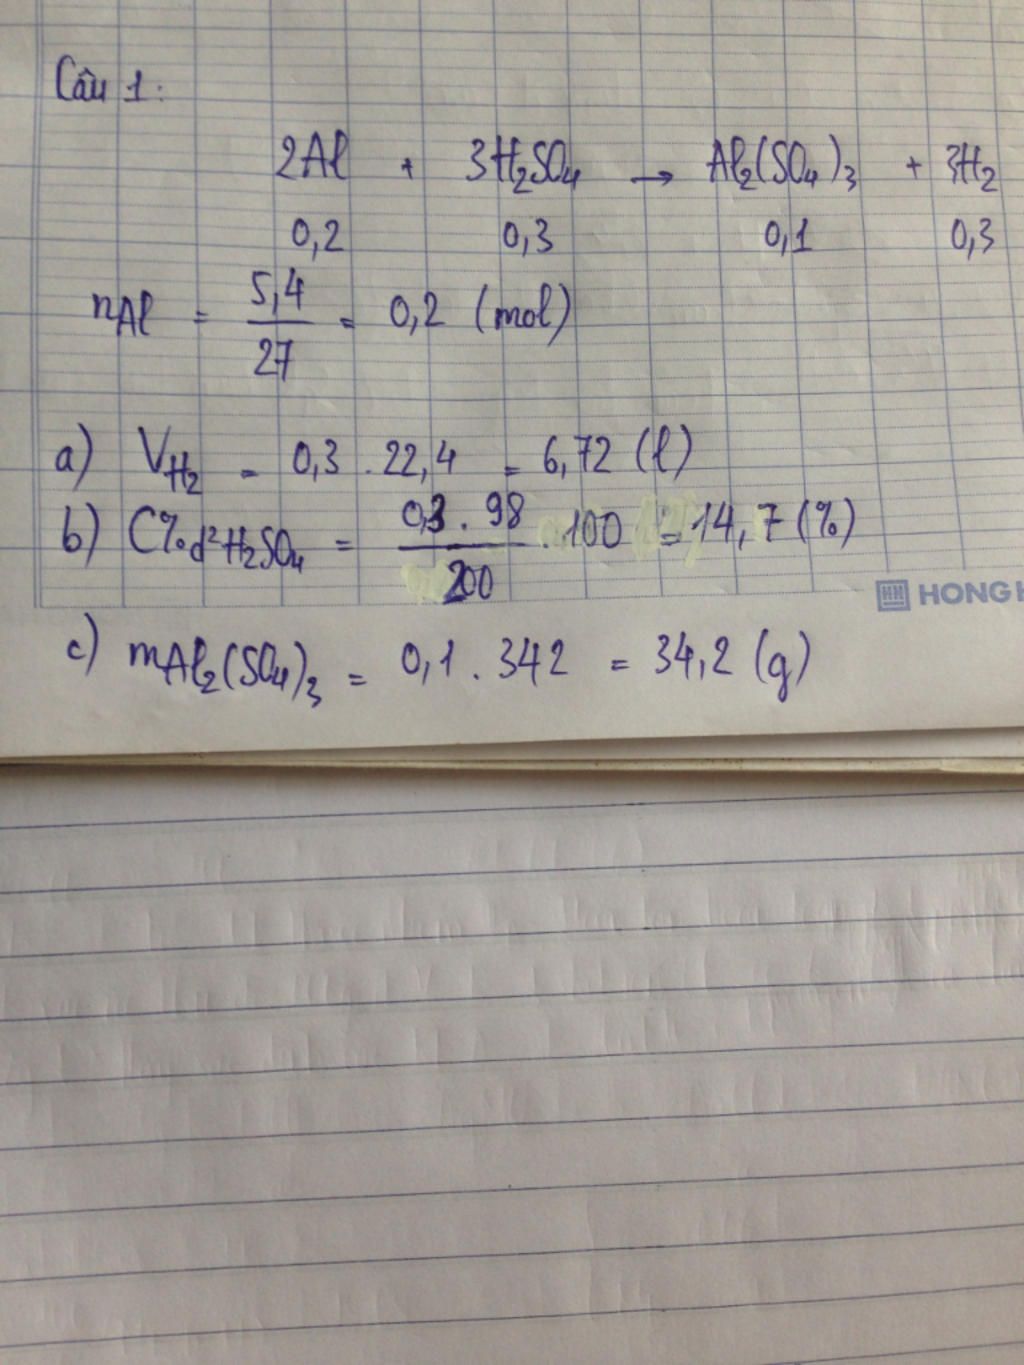 Câu 1:
2Al + 3H₂SO₄ → Al₂(SO₄)₃ + 3H₂
0,2 0,3 0,1 0,3
nAl = 5,4/27 = 0,2 (mol)
a) V_H₂ = 0,3 . 22,4 = 6,72 (l)
b) C%d²H₂SO₄ = 0,3 . 98/200 . 100 = 14,7 (%)
HONG H
c) mAl₂(SO₄)₃ = 0,1 . 342 = 34,2 (g)